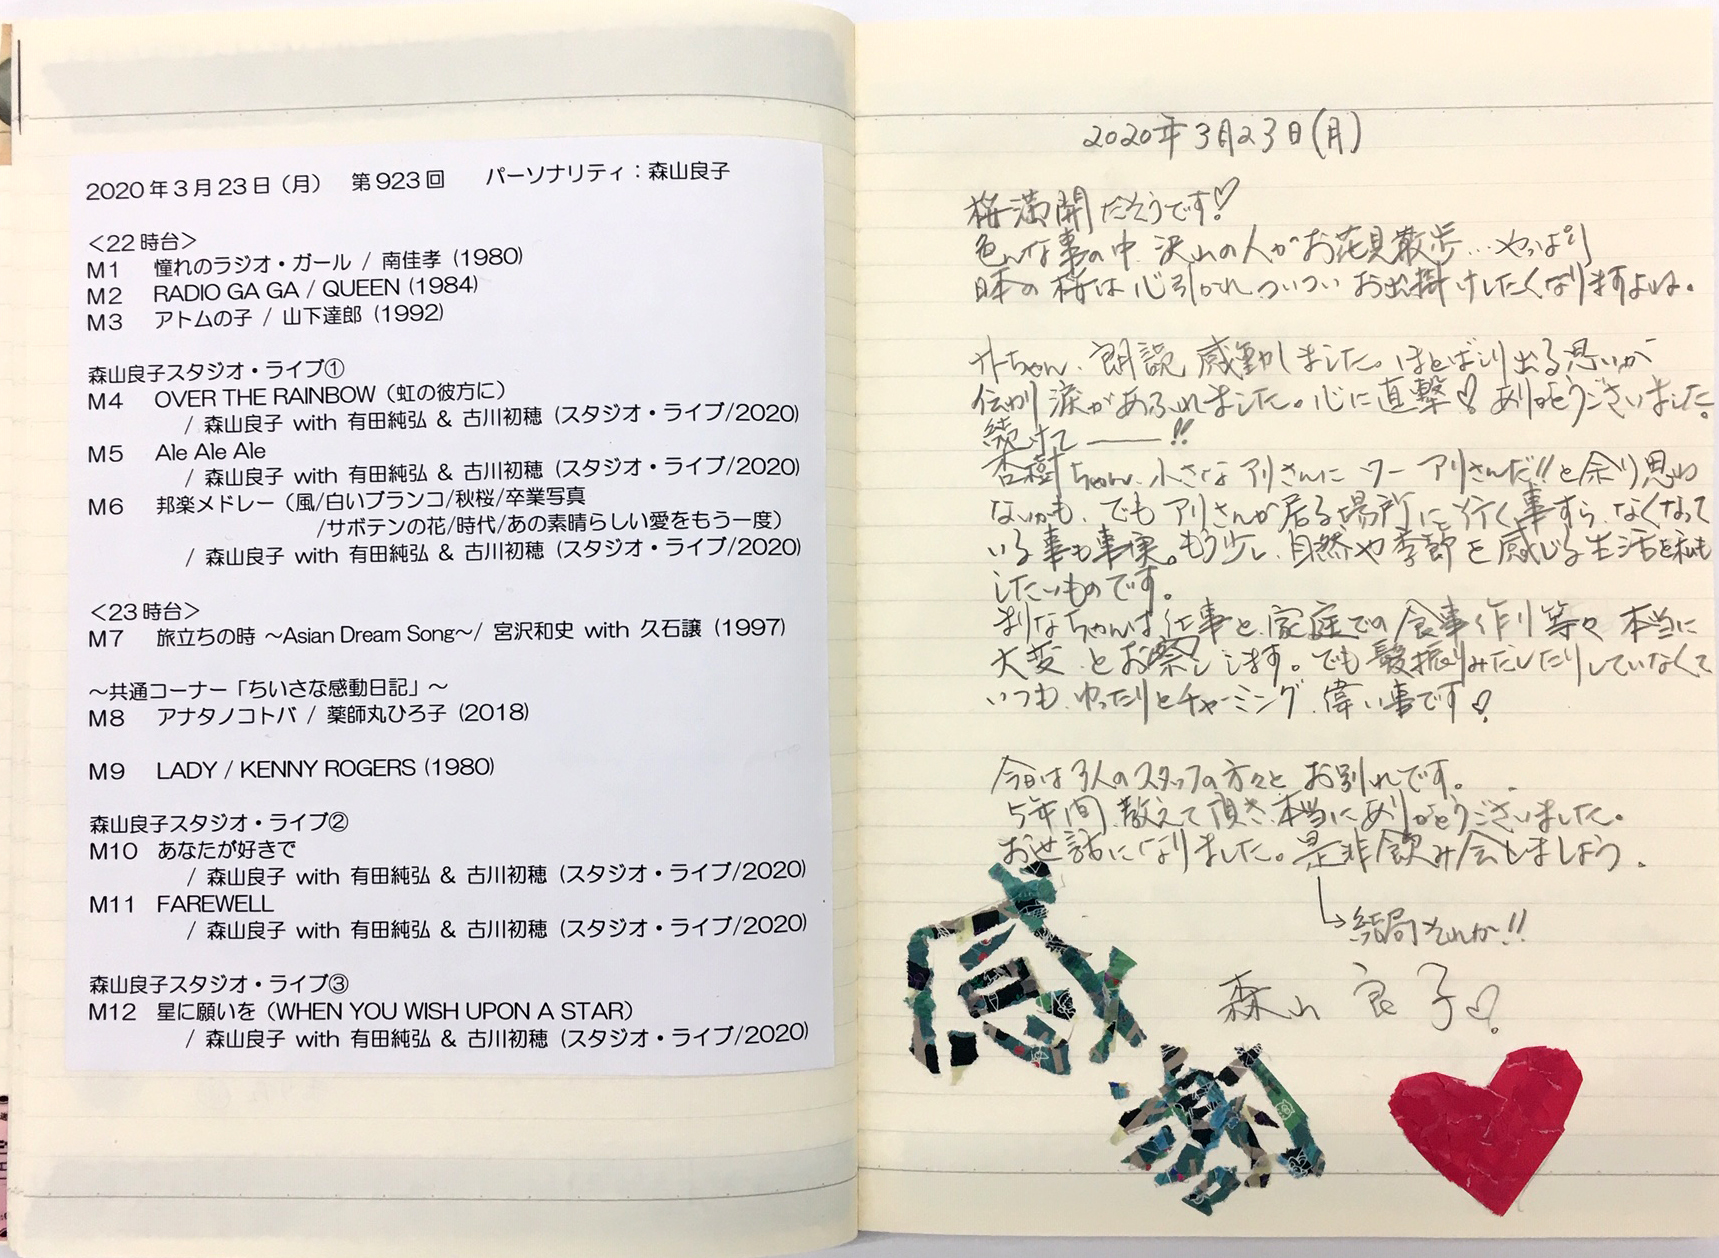 2020年3月23日（月）　第923回　　パーソナリティ：森山良子
＜22時台＞
M1　憧れのラジオ・ガール / 南佳孝 (1980)
M2　RADIO GA GA / QUEEN (1984)
M3　アトムの子 / 山下達郎 (1992)
森山良子スタジオ・ライブ①
M4　OVER THE RAINBOW（虹の彼方に）
/ 森山良子 with 有田純弘 & 古川初穂 (スタジオ・ライブ/2020)
M5　Ale Ale Ale
/ 森山良子 with 有田純弘 & 古川初穂 (スタジオ・ライブ/2020)
M6　邦楽メドレー（風/白いブランコ/秋桜/卒業写真
/サボテンの花/時代/あの素晴らしい愛をもう一度）
/ 森山良子 with 有田純弘 & 古川初穂 (スタジオ・ライブ/2020)
＜23時台＞
M7　旅立ちの時 ～Asian Dream Song～/ 宮沢和史 with 久石譲 (1997)
～共通コーナー「ちいさな感動日記」～
M8　アナタノコトバ / 薬師丸ひろ子 (2018)
M9　LADY / KENNY ROGERS (1980)
森山良子スタジオ・ライブ②
M10　あなたが好きで
/ 森山良子 with 有田純弘 & 古川初穂 (スタジオ・ライブ/2020)
M11　FAREWELL
/ 森山良子 with 有田純弘 & 古川初穂 (スタジオ・ライブ/2020)
森山良子スタジオ・ライブ③
M12　星に願いを（WHEN YOU WISH UPON A STAR）
/ 森山良子 with 有田純弘 & 古川初穂 (スタジオ・ライブ/2020)
2020年3月23日(月)
桜満開だそうです♡
色んな事の中、沢山の人がお花見散歩…やっぱり
日本の桜は心引かれ、ついつい お出掛けしたくなりますよね。
ちゃん、朗読 感動しました。ほとばしり出る思いが
伝わり 涙があふれました。心に直撃♡ ありがとうございました。
続けて――!!
杏樹ちゃん、小さなアリさんに ワー アリさんだ!!と余り思わ
ないかも、でもアリさんが居る場所に行く事すら、なくなって
いる事も事実。もう少し、自然や季節を感じる生活を私も
したいものです。
まりなちゃんは仕事と、家庭での食事作り等々 本当に
大変 とお察しします。でも髪振りみだしたりしていなくて
いつも、ゆったりとチャーミング、偉い事です♡
今日は3人のスタッフの方々と お別れです。
5年間、教えて頂き、本当にありがとうございました。
お世話になりました。是非飲み会しましょう。
↳結局それか!!
森山 良子♡
感
謝